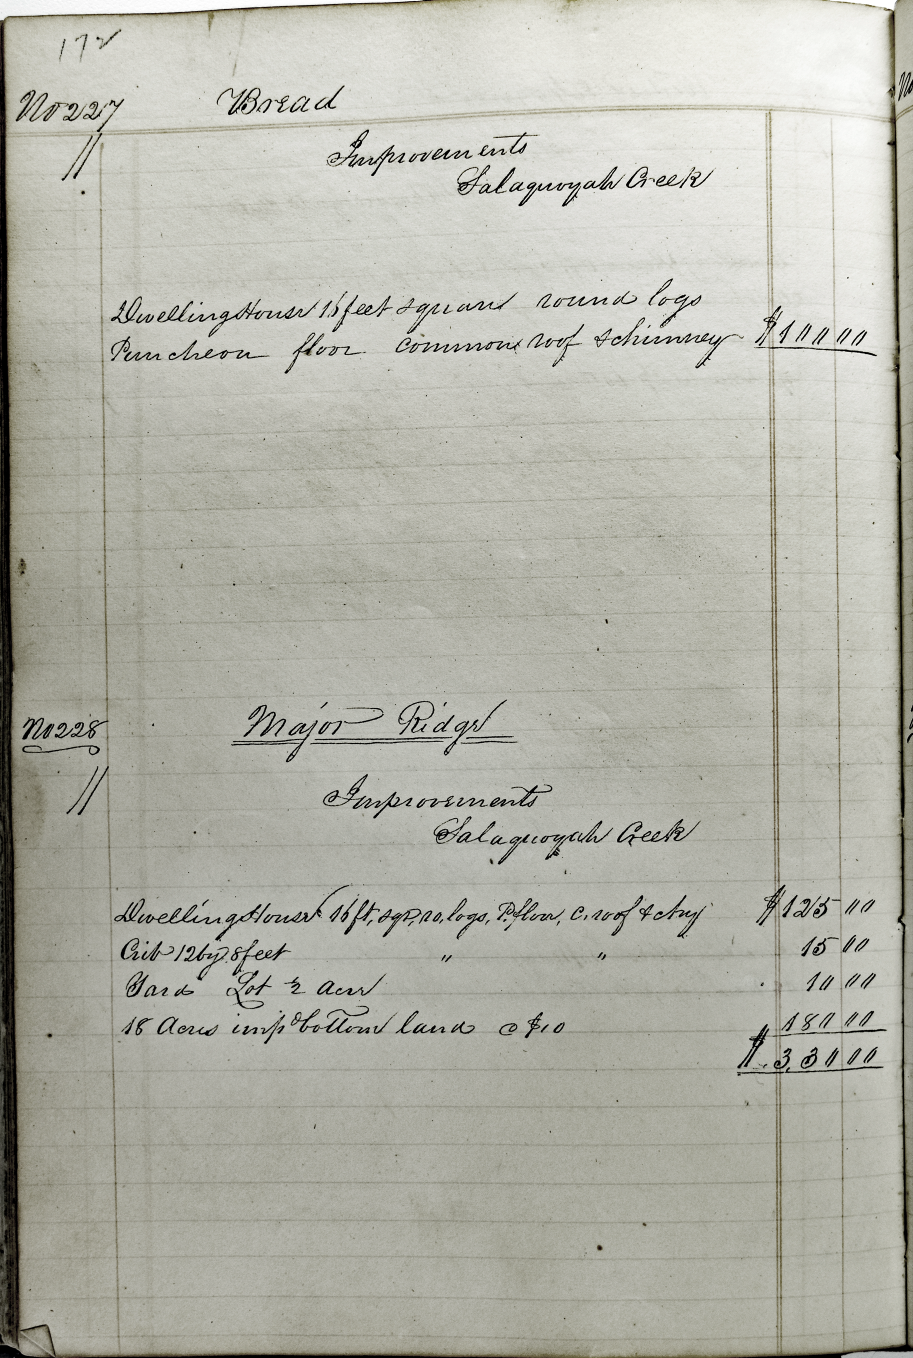 172
No 227 Bread
"
Improvements
Salaquoyah Creek
Dwelling House 16 feet square round logs
Puncheon floor common roof & chimney $100 00
No 228 Major Ridge
"
Improvements
Salaquoyah Creek
Dwelling House 16 ft, sqr, ro, logs, P. floor, c. roof & chy $125 00
Crib 12 by 8 feet " " 15 00
Yard Lot ½ Acre 10 00
18 Acres impd bottom land @ $10 180 00
$330 00